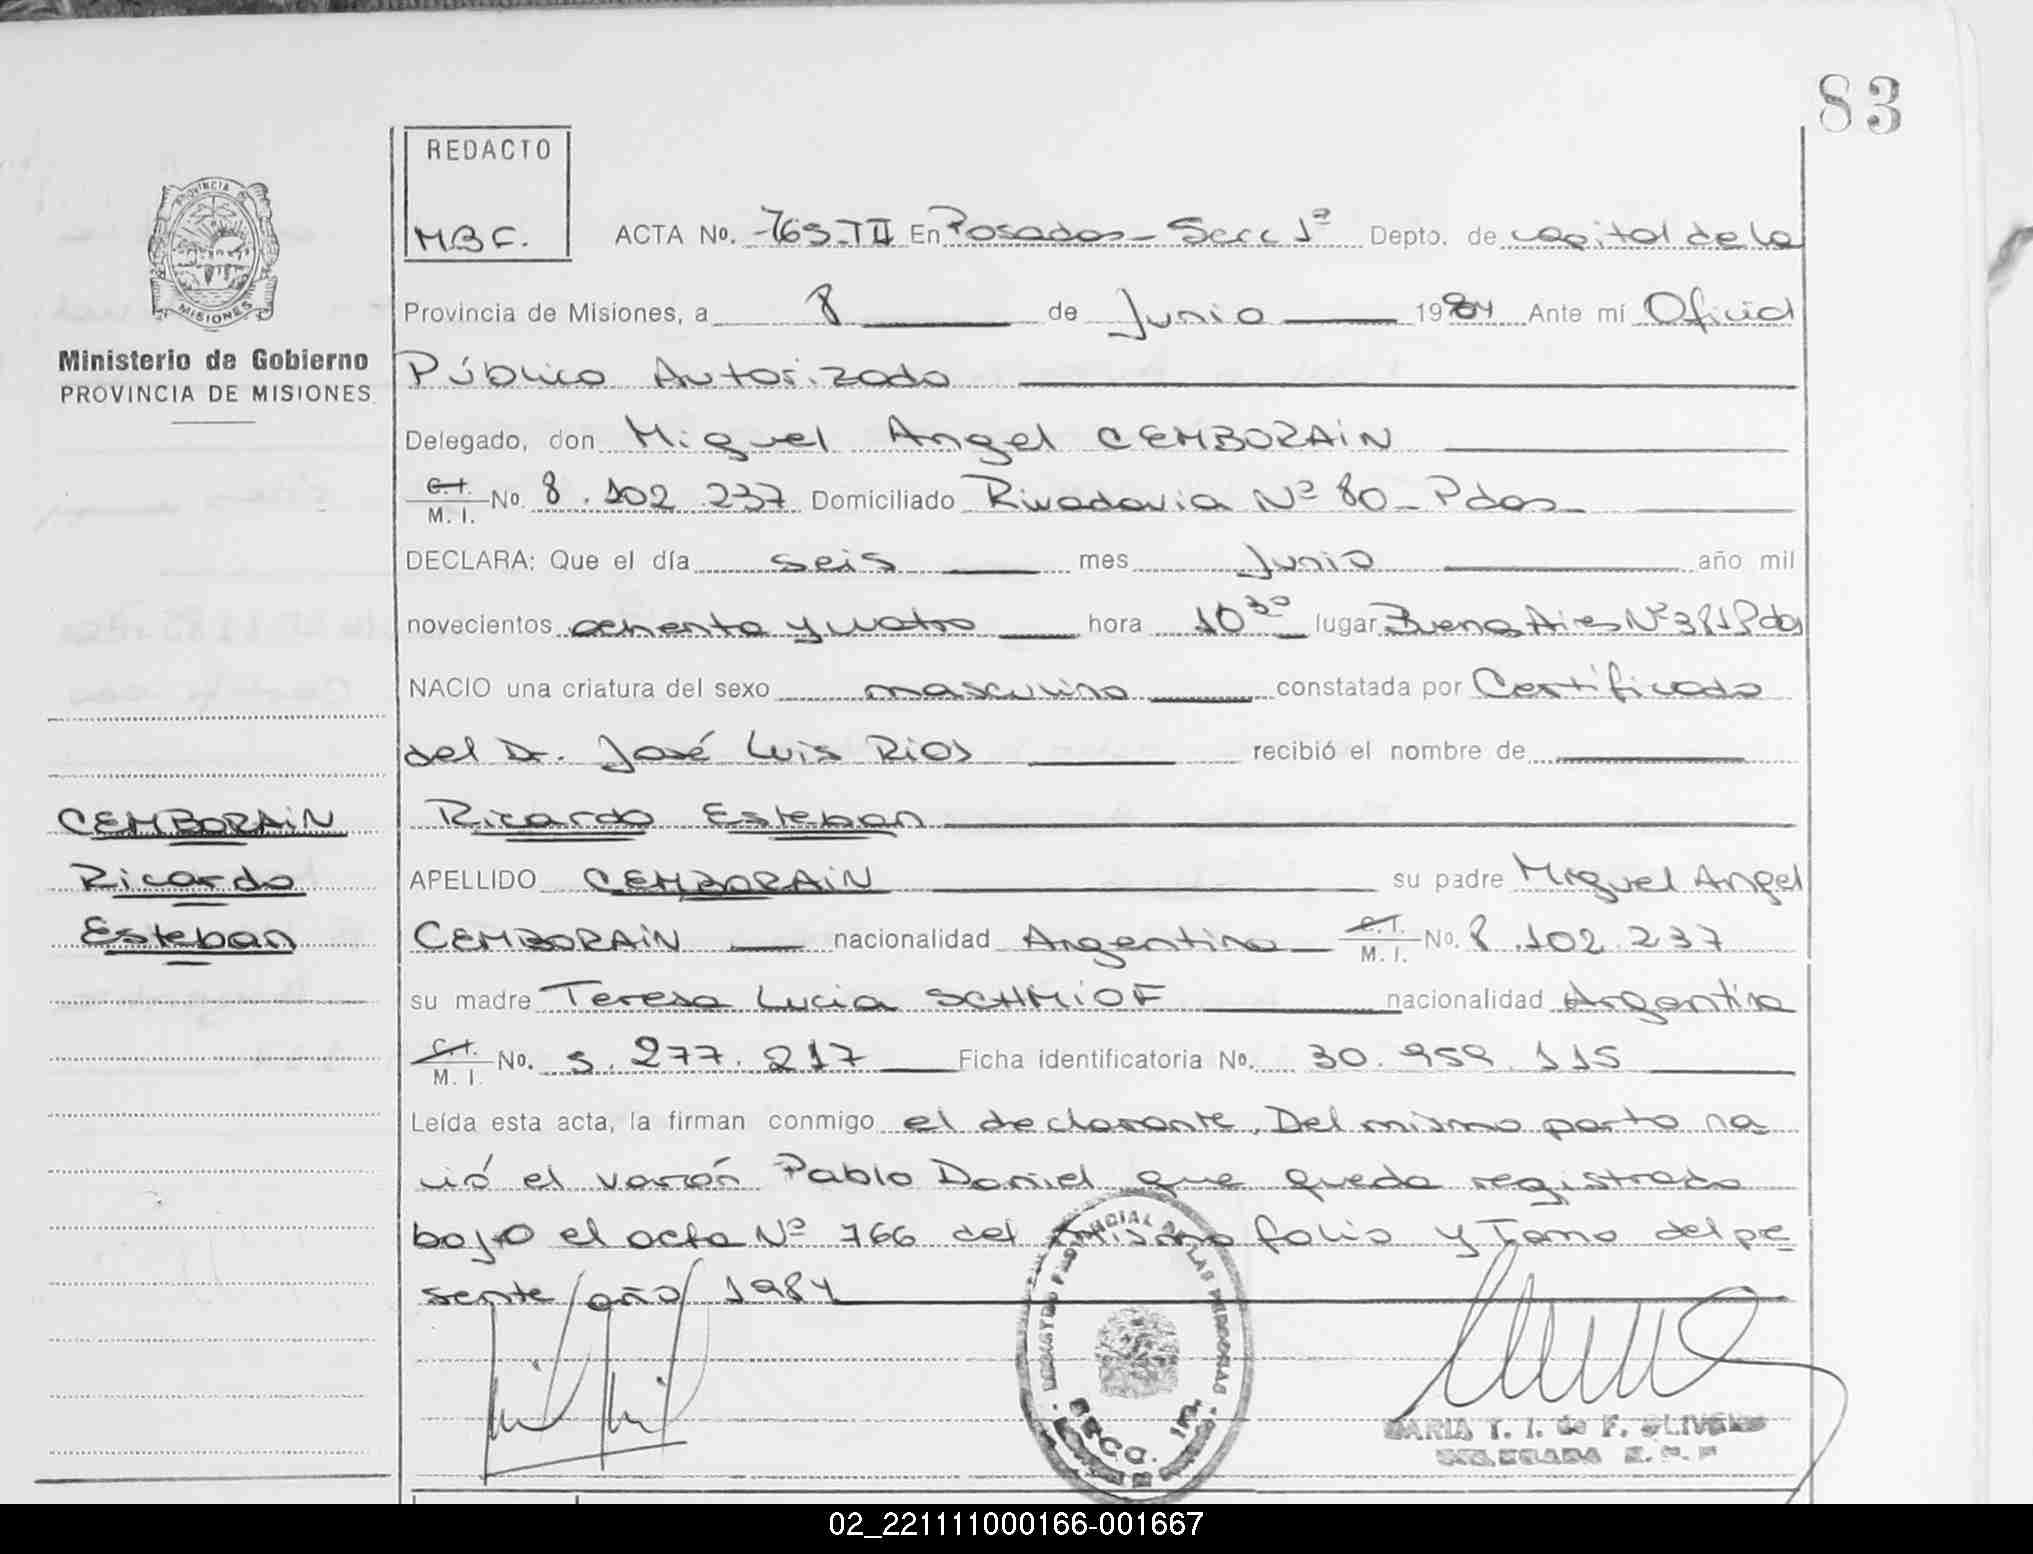 83
REDACTO
M.B.C.
ACTA No. 765-TII En Posadas - Secc 1ª Depto. de capital de la
PROVINCIA DE
MISIONES
Ministerio de Gobierno
PROVINCIA DE MISIONES
Provincia de Misiones, a 8 de Junio 1984 Ante mí Oficial
Público Autorizado
Delegado, don Miguel Angel CEMBORAIN
C.I. M. I. No. 8.102.237 Domiciliado Rivadavia Nº 80 - Pdas
DECLARA: Que el día seis mes Junio año mil
novecientos ochenta y cuatro hora 10 30 lugar Buenos Aires Nº 381 Pdas
NACIO una criatura del sexo masculino constatada por Certificado
del Dr. José Luis Rios recibió el nombre de
CEMBORAIN
Ricardo Esteban
Ricardo
APELLIDO CEMBORAIN su padre Miguel Angel
Esteban
CEMBORAIN nacionalidad Argentina C.I. M. I. No. 8.102.237
su madre Teresa Lucia nacionalidad Argentina
C.I. M. I. No. 5.277.217 Ficha identificatoria No. 30.959.115
Leída esta acta, la firman conmigo el declarante. Del mismo parto na
ció el varón Pablo Daniel que queda registrado
bajo el acta Nº 766 del mismo folio y Tomo del pe
sente año 1984
REGISTRO PROVINCIAL DE LAS PERSONAS
SECC. 1ra.
MARIA T. I. de F. OLIVEIRA
DELEGADA
02_221111000166-001667